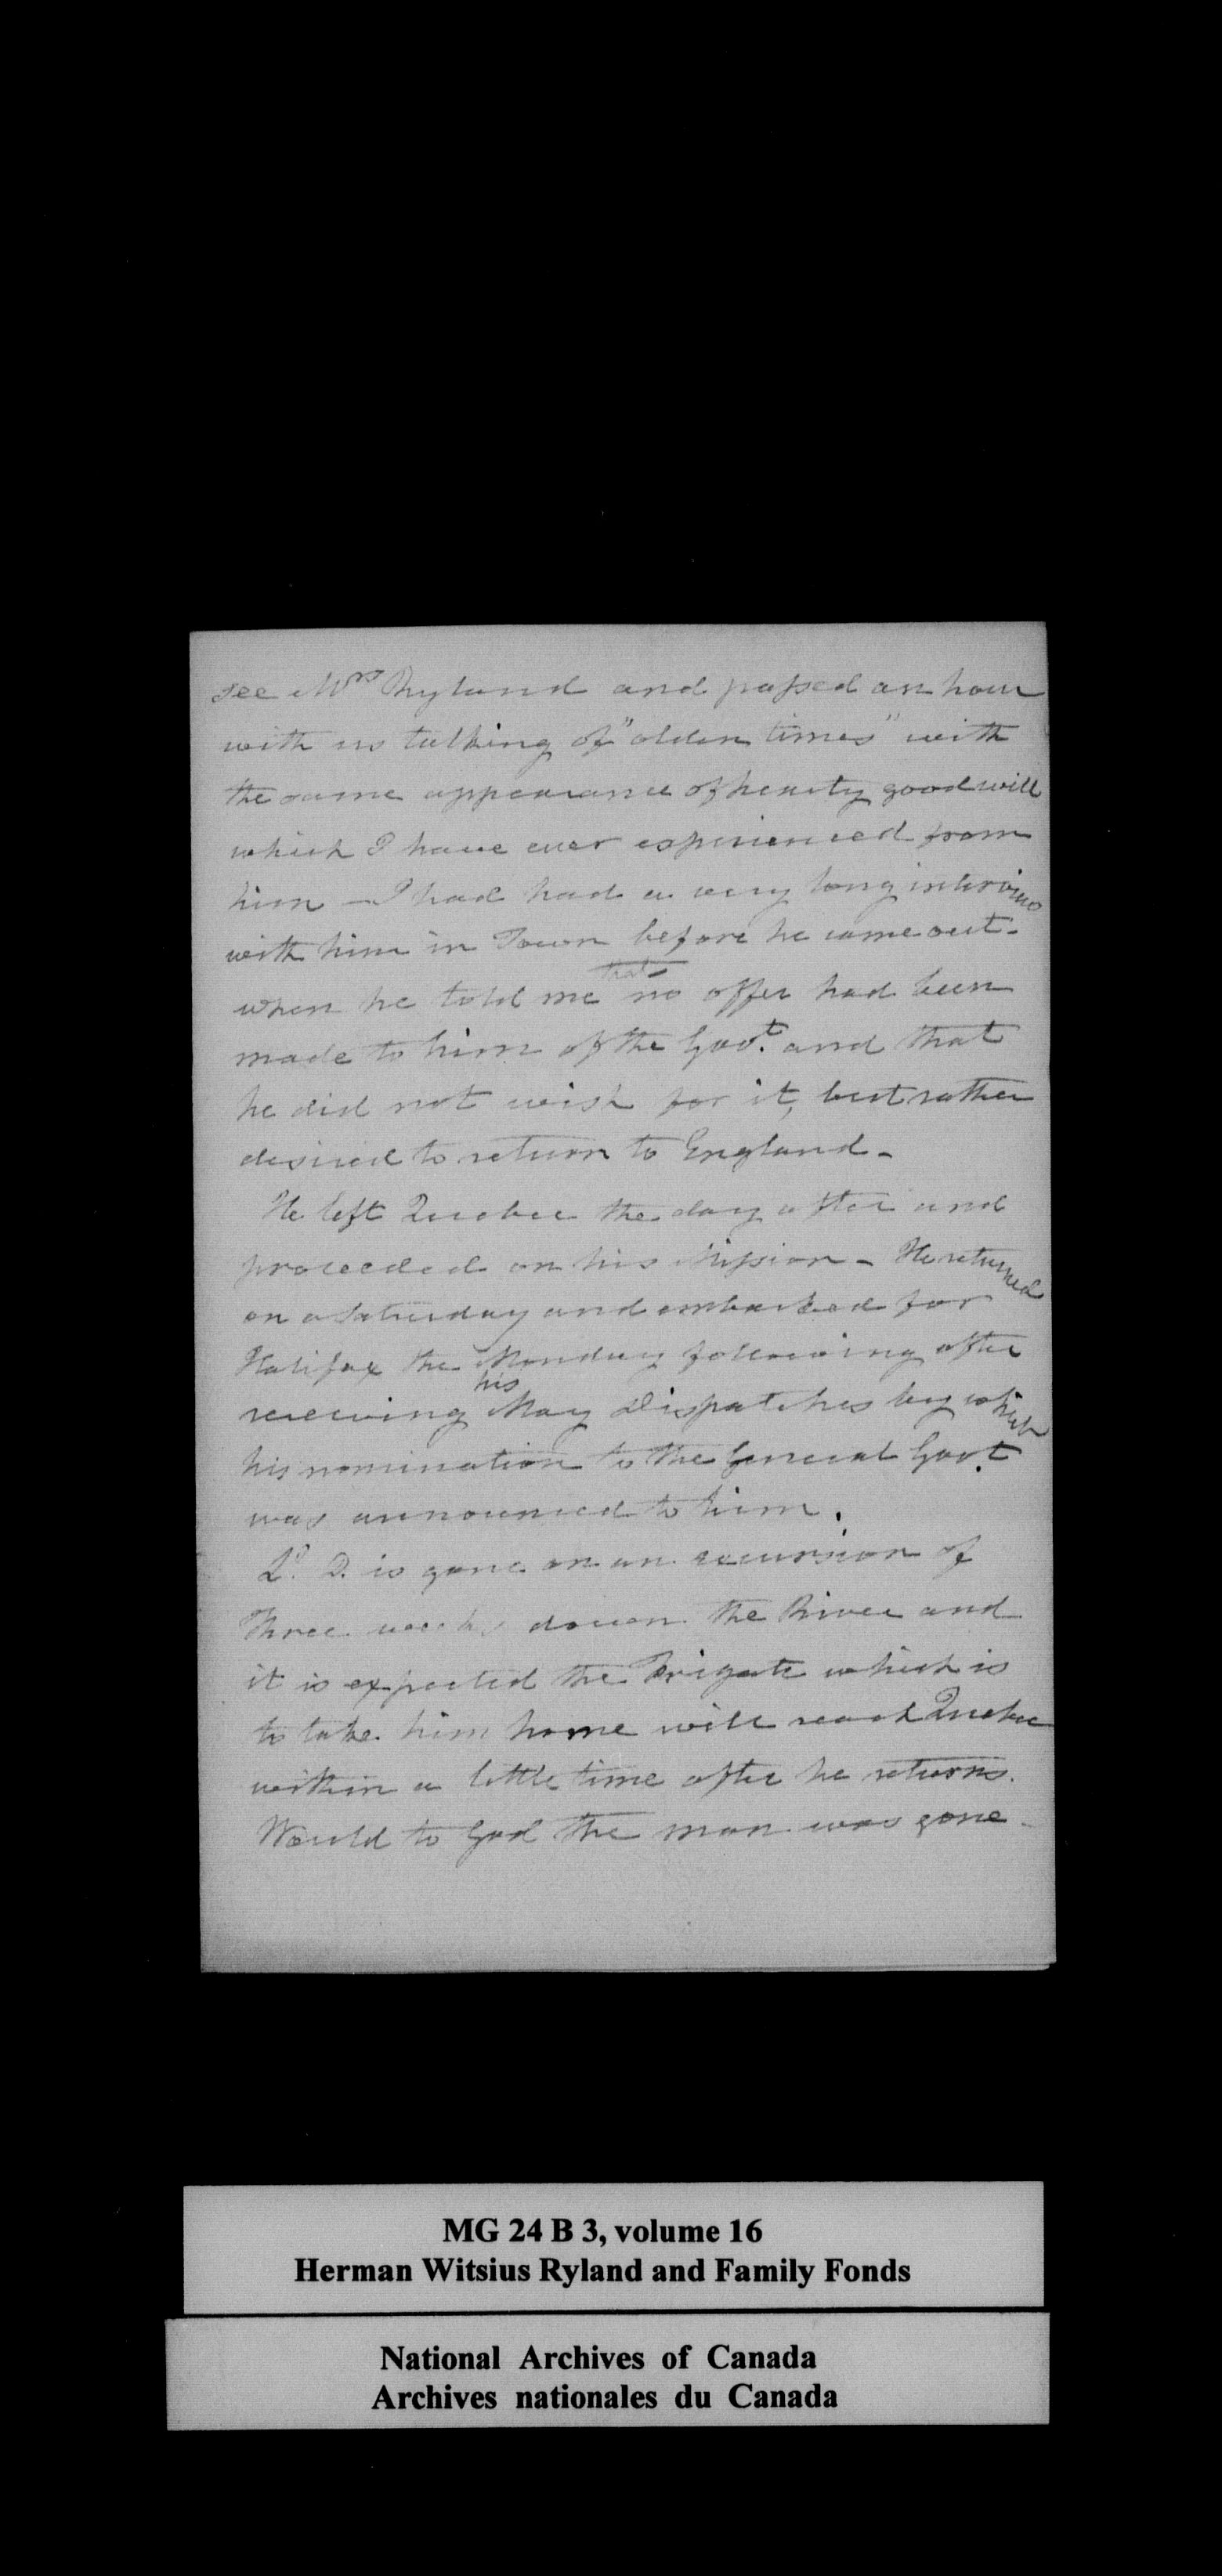 see Mrs Ryland and passed an hour
with us talking of "olden times" with
the same appearance of hearty good will
which I have ever experienced from
him — I had had a very long interview
with him in Town before he came out -
when he told me that no offer had been
made to him of the Govt. and that
he did not wish for it, but rather
desired to return to England -
He left Quebec the day after and
proceeded on his Mission - He returned
on a Saturday and embarked for
Halifax the Monday following after
receiving his May Dispatches by which
his nomination to the General Govt
was announced to him.
Ld. D. is gone on an excursion of
Three weeks down the River and
it is expected the Frigate which is
to take him home will reach Quebec
within a little time after he returns.
Would to God the man was gone -
MG 24 B 3, volume 16
Herman Witsius Ryland and Family Fonds
National Archives of Canada
Archives nationales du Canada